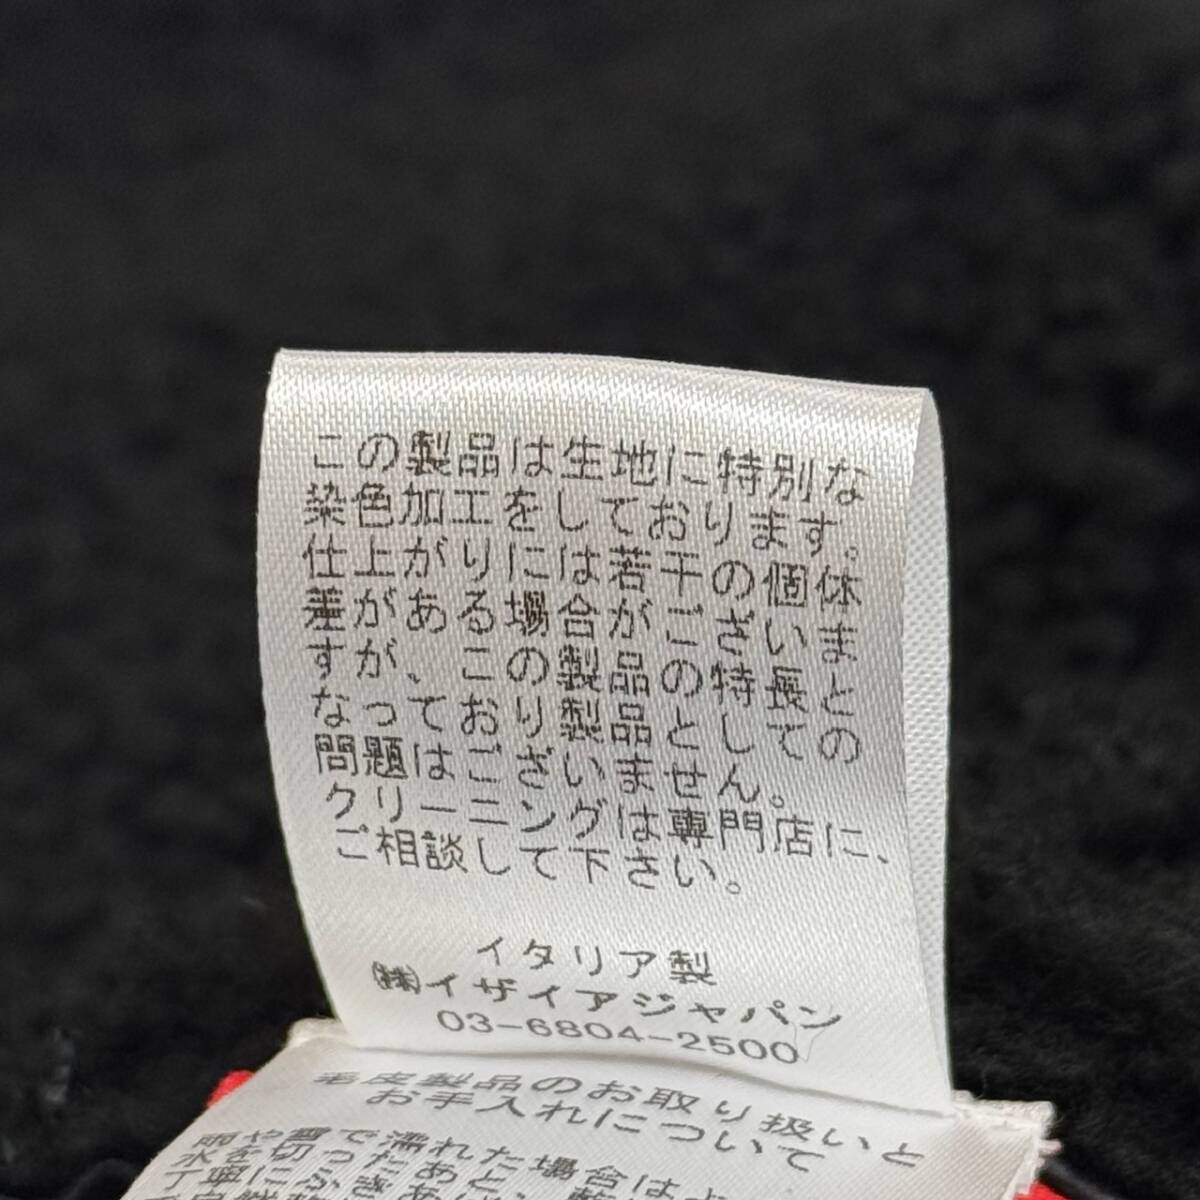 この製品は生地に特別な
染色加工をしております。
仕上がりには若干の個体
差がある場合がございま
すが、この製品の特長と
なっており製品としての
問題はございません。
クリーニングは専門店に、
ご相談して下さい。
イタリア製
㈱イザイアジャパン
03-6804-2500
毛皮製品のお取り扱いと
お手入れについて
雨や雪で濡れた場合は
水を切ったあと、
丁寧にふき